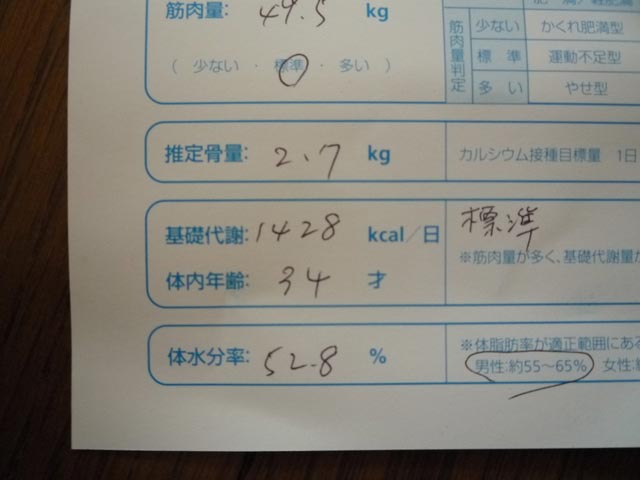 筋肉量: 49.5 kg
( 少ない ・ 標準 ・ 多い )
筋肉量判定
少ない かくれ肥満型
標準 運動不足型
多い やせ型
推定骨量: 2.7 kg
カルシウム接種目標量 1日
基礎代謝: 1428 kcal/日
体内年齢: 34 才
標準
※筋肉量が多く、基礎代謝量が
体水分率: 52.8 %
※体脂肪率が適正範囲にある
男性:約55～65% 女性: